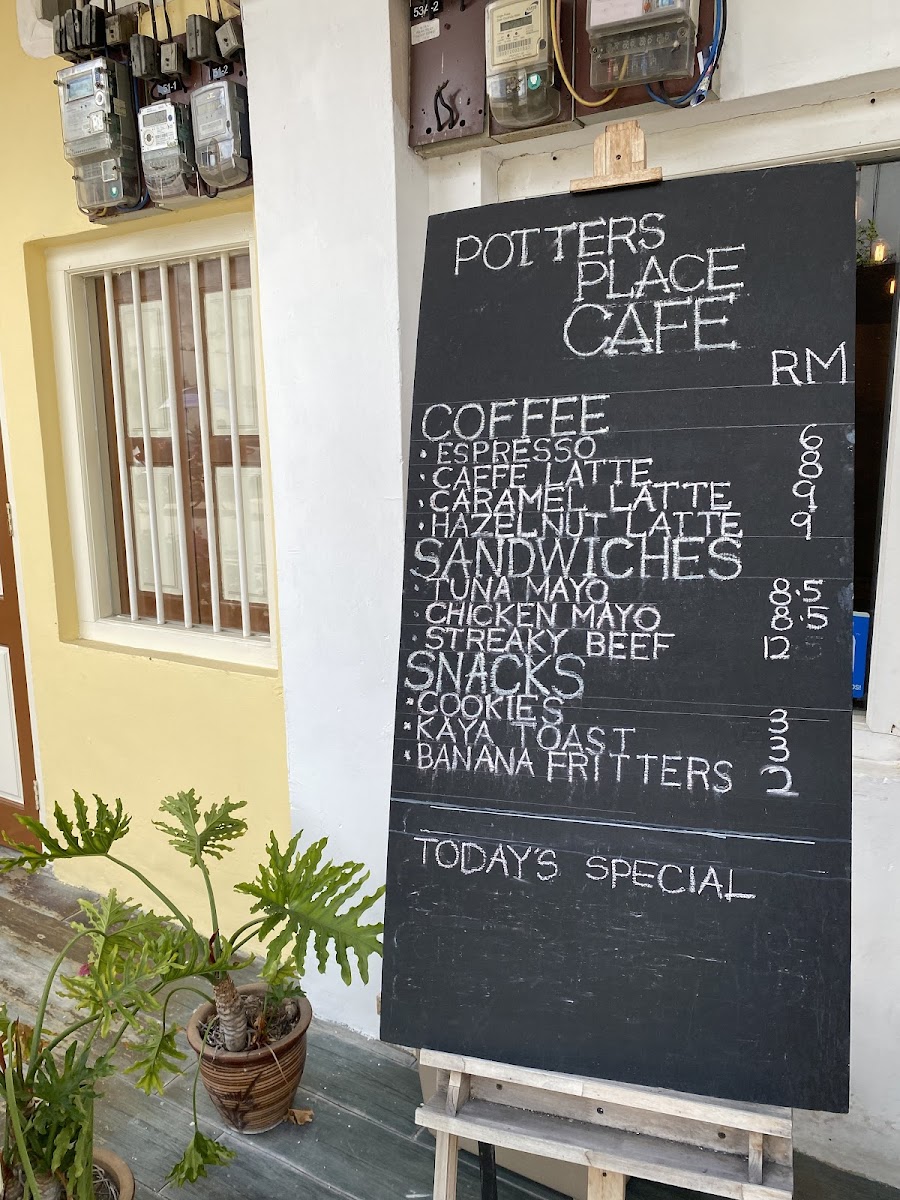 53A-2
51-1
51-2
POTTERS
PLACE
CAFE
RM
COFFEE
• ESPRESSO 6
• CAFFE LATTE 8
• CARAMEL LATTE 9
• HAZELNUT LATTE 9
SANDWICHES
• TUNA MAYO 8.5
CHICKEN MAYO 8.5
• STREAKY BEEF 12
SNACKS
• COOKIES 3
• KAYA TOAST 3
• BANANA FRITTERS 2
TODAY'S SPECIAL